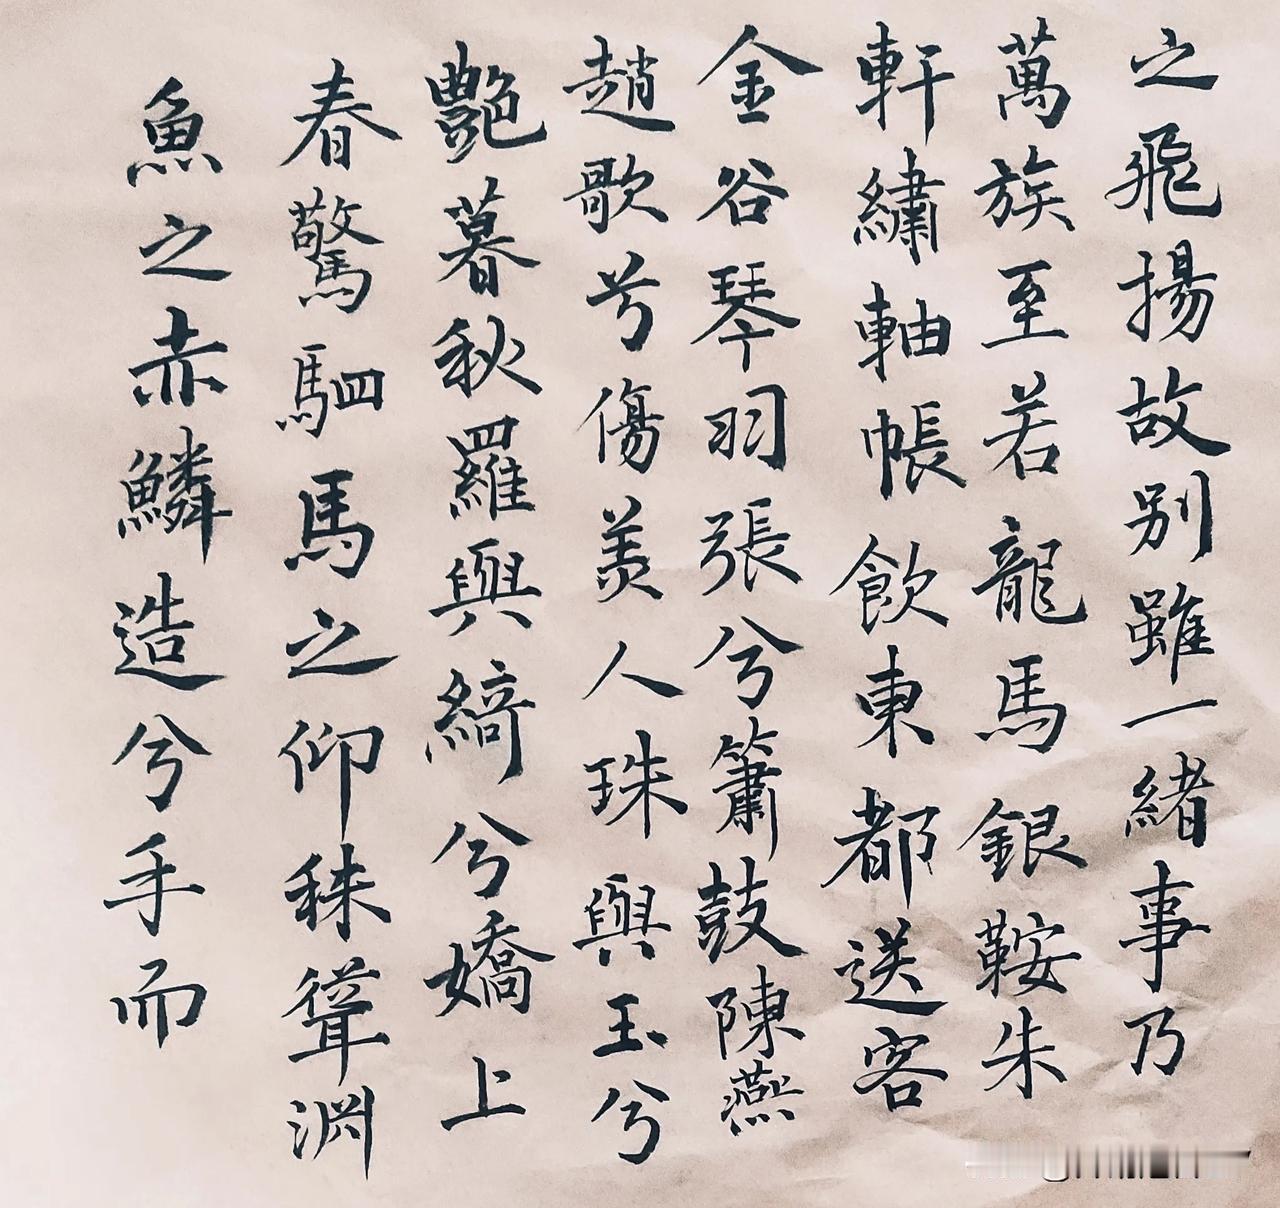 之飛揚故別雖一緒事乃
萬族至若龍馬銀鞍朱
軒繡軸帳飲東都送客
金谷琴羽張兮簫鼓陳燕
趙歌兮傷美人珠與玉兮
艷暮秋羅與綺兮嬌上
春驚駟馬之仰秣聳淵
魚之赤鱗造兮手而